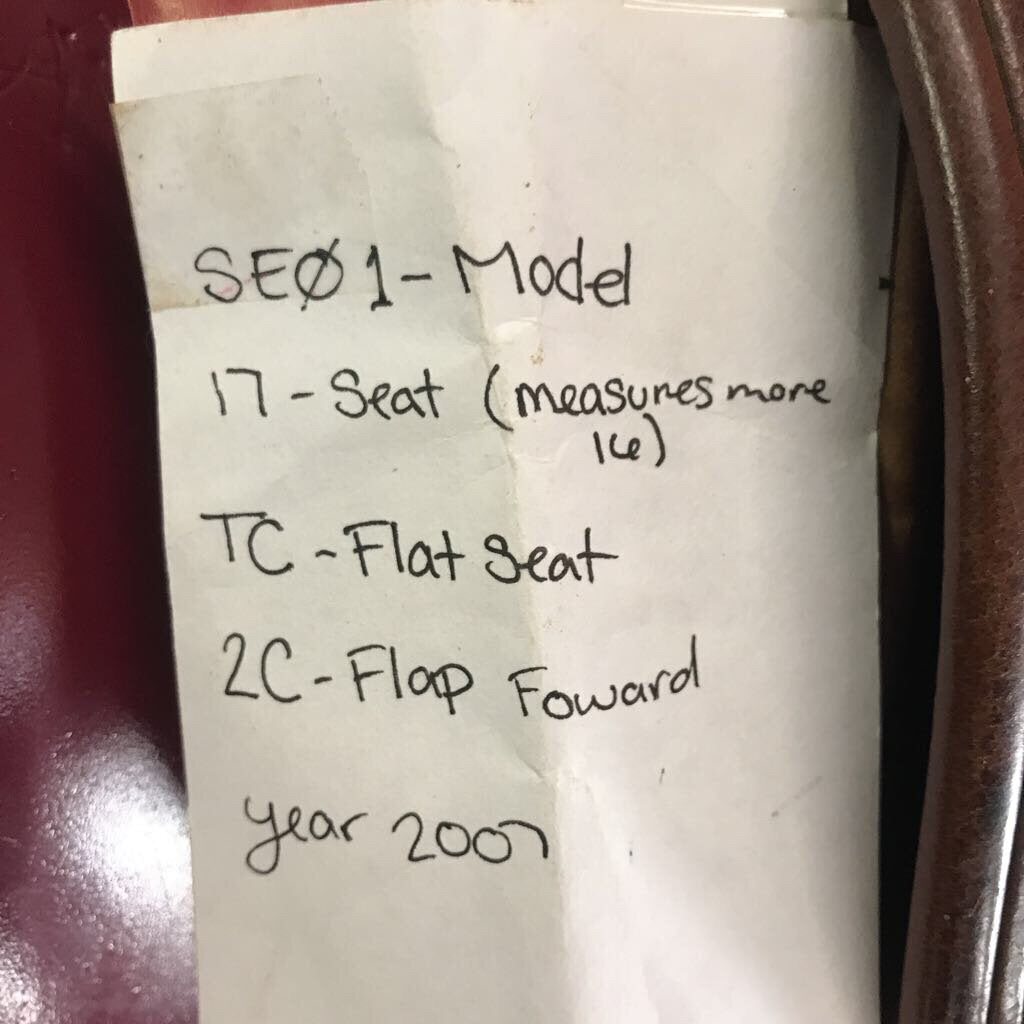 SEØ1-Model
17-Seat (measures more
16)
TC-Flat Seat
2C-Flap Foward
year 2007